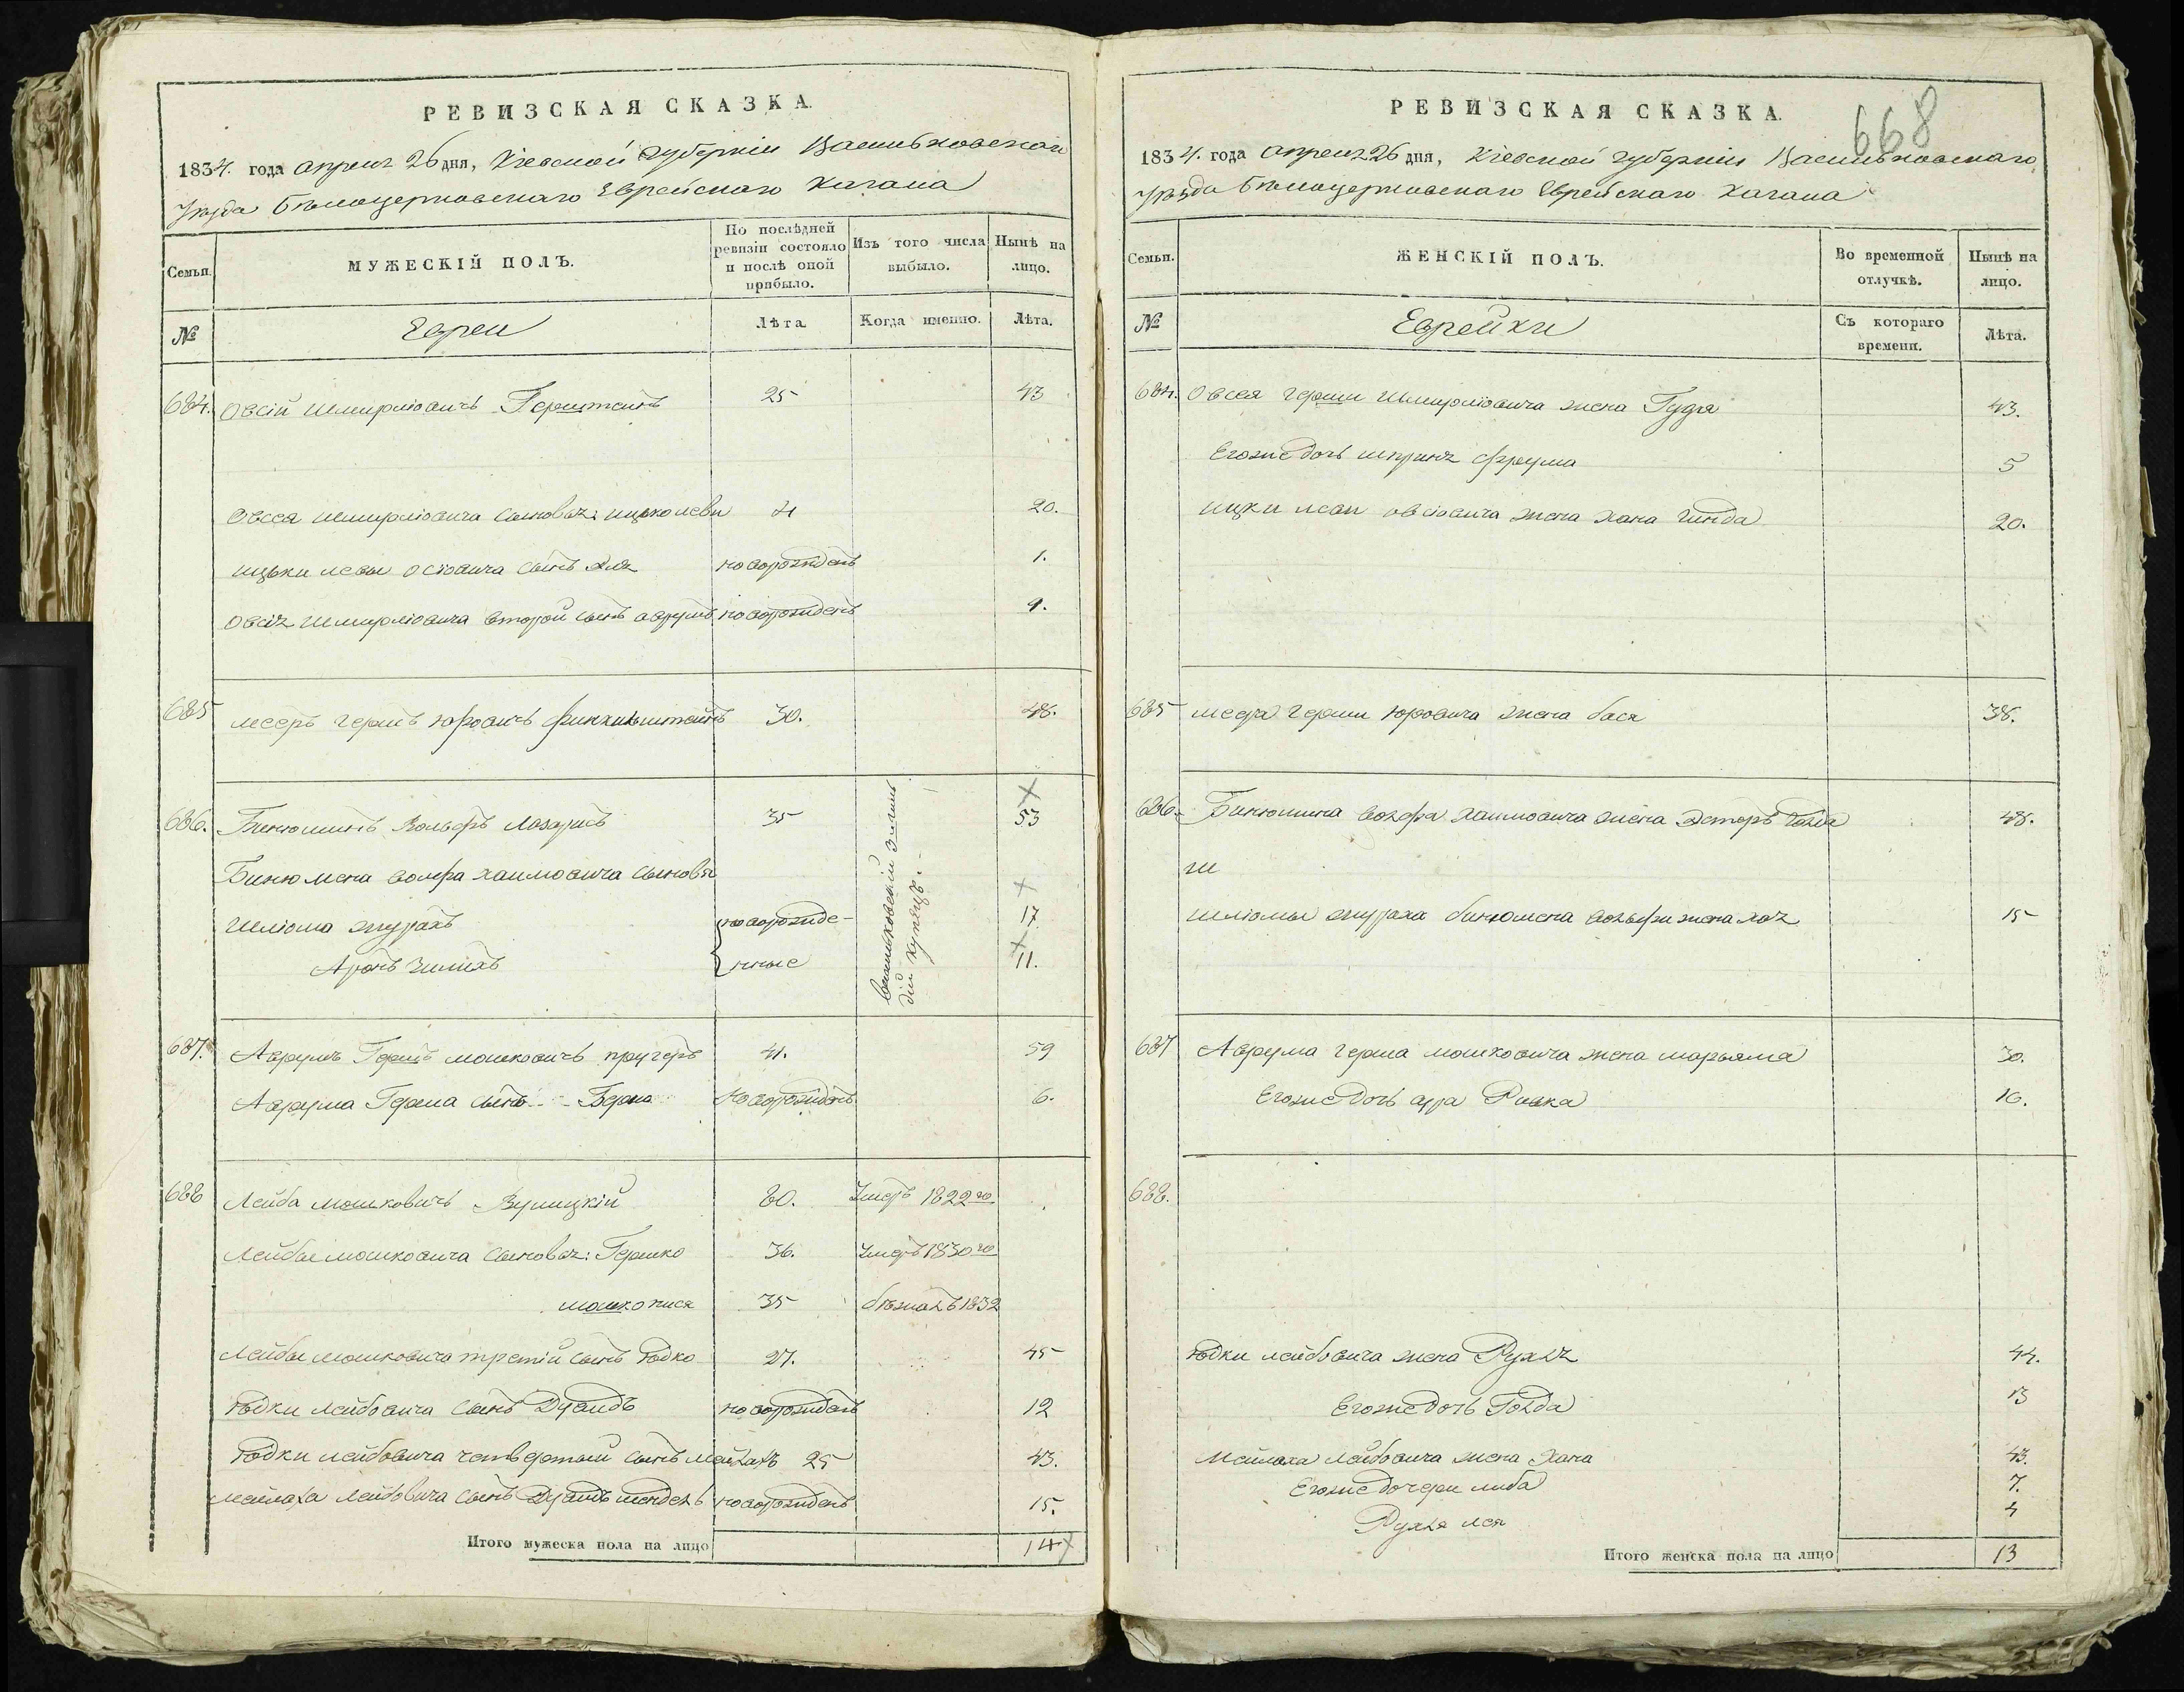 РЕВИЗСКАЯ СКАЗКА.
1834. года апреля 26 дня, Кіевской губерніи Васильковскаго
Уѣзда Бѣлоцерковскаго Еврейскаго Кагала
Семьи.
МУЖЕСКІЙ ПОЛЪ.
По послѣдней ревизіи состояло и послѣ оной прибыло.
Изъ того числа выбыло.
Нынѣ на лицо.
№
Евреи
Лѣта
Когда именно.
Лѣта.
684. Овсій Шмиріовичъ Герштейнъ 25 43
Овсея Шмиріовича сыновья: ицько леви 4 20.
ицьки левы осіовича сынъ новорожденъ 1.
Овсія Шмиріовича второй сынъ аврумъ новорожденъ 9.
685 мееръ гершъ юровичъ финкильштейнъ 30. 48.
686. Бинюминъ Вольфъ 35 53
Бинюмена волфа хаимовича сыновья
Шліома новорожде- 17
Аронъ Зилихъ нные 11.
васильковскій 3 гиль
дій купецъ.
687. Аврумъ Гершъ мошковичъ пругеръ 41. 59
Аврума Герша сынъ - - Берко новорожденъ 6.
688 Лейба Мошковичъ 80. Умеръ 1822го
Лейбы мошковича сыновья: Гершко 36. Умеръ 1830го
мошко 35 бѣжалъ 1832
Лейбы мошковича третій сынъ Юдко 27. 45
Юдки Лейбовича сынъ Дувидъ новорожденъ 12
Юдки лейбовича четвертый сынъ мейлахъ 25 43.
мейлаха Лейбовича сынъ Дувидъ мендель новорожденъ 15.
Итого мужеска пола на лицо 14
668
РЕВИЗСКАЯ СКАЗКА.
1834. года апреля 26 дня, Кіевской губерніи Васильковскаго
Уѣзда Бѣлоцерковскаго Еврейскаго Кагала
Семьи.
ЖЕНСКІЙ ПОЛЪ.
Во временной отлучкѣ.
Нынѣ на лицо.
№
Еврейки
Съ котораго времени.
Лѣта.
684. Овсея герши Шмиріовича жена Гудя 43.
Егоже дочь шпринца фрума 5
ицки леви овсіовича жена хана гинда 20.
685 меера герши юровича жена бася 38.
686. Бинюмина волфа хаимовича жена Эстеръ 48.
Шліомы бинюмена вольфи жена хая 15
687 Аврума герша мошковича жена марьяма 30.
Егоже дочь Ривка 16.
688.
Юдки лейбовича жена Рухля 44.
Егоже дочь Голда 13
Мейлаха Лейбовича жена Хана 43.
Егоже дочери либа 7.
Рухля лея 4
Итого женска пола на лицо 13